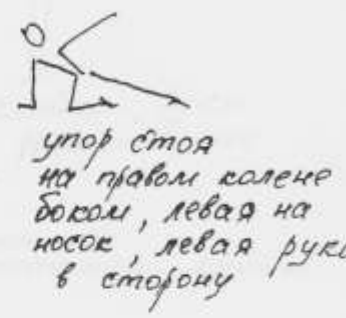 упор стоя
на правом колене
боком, левая на
носок, левая рука
в сторону